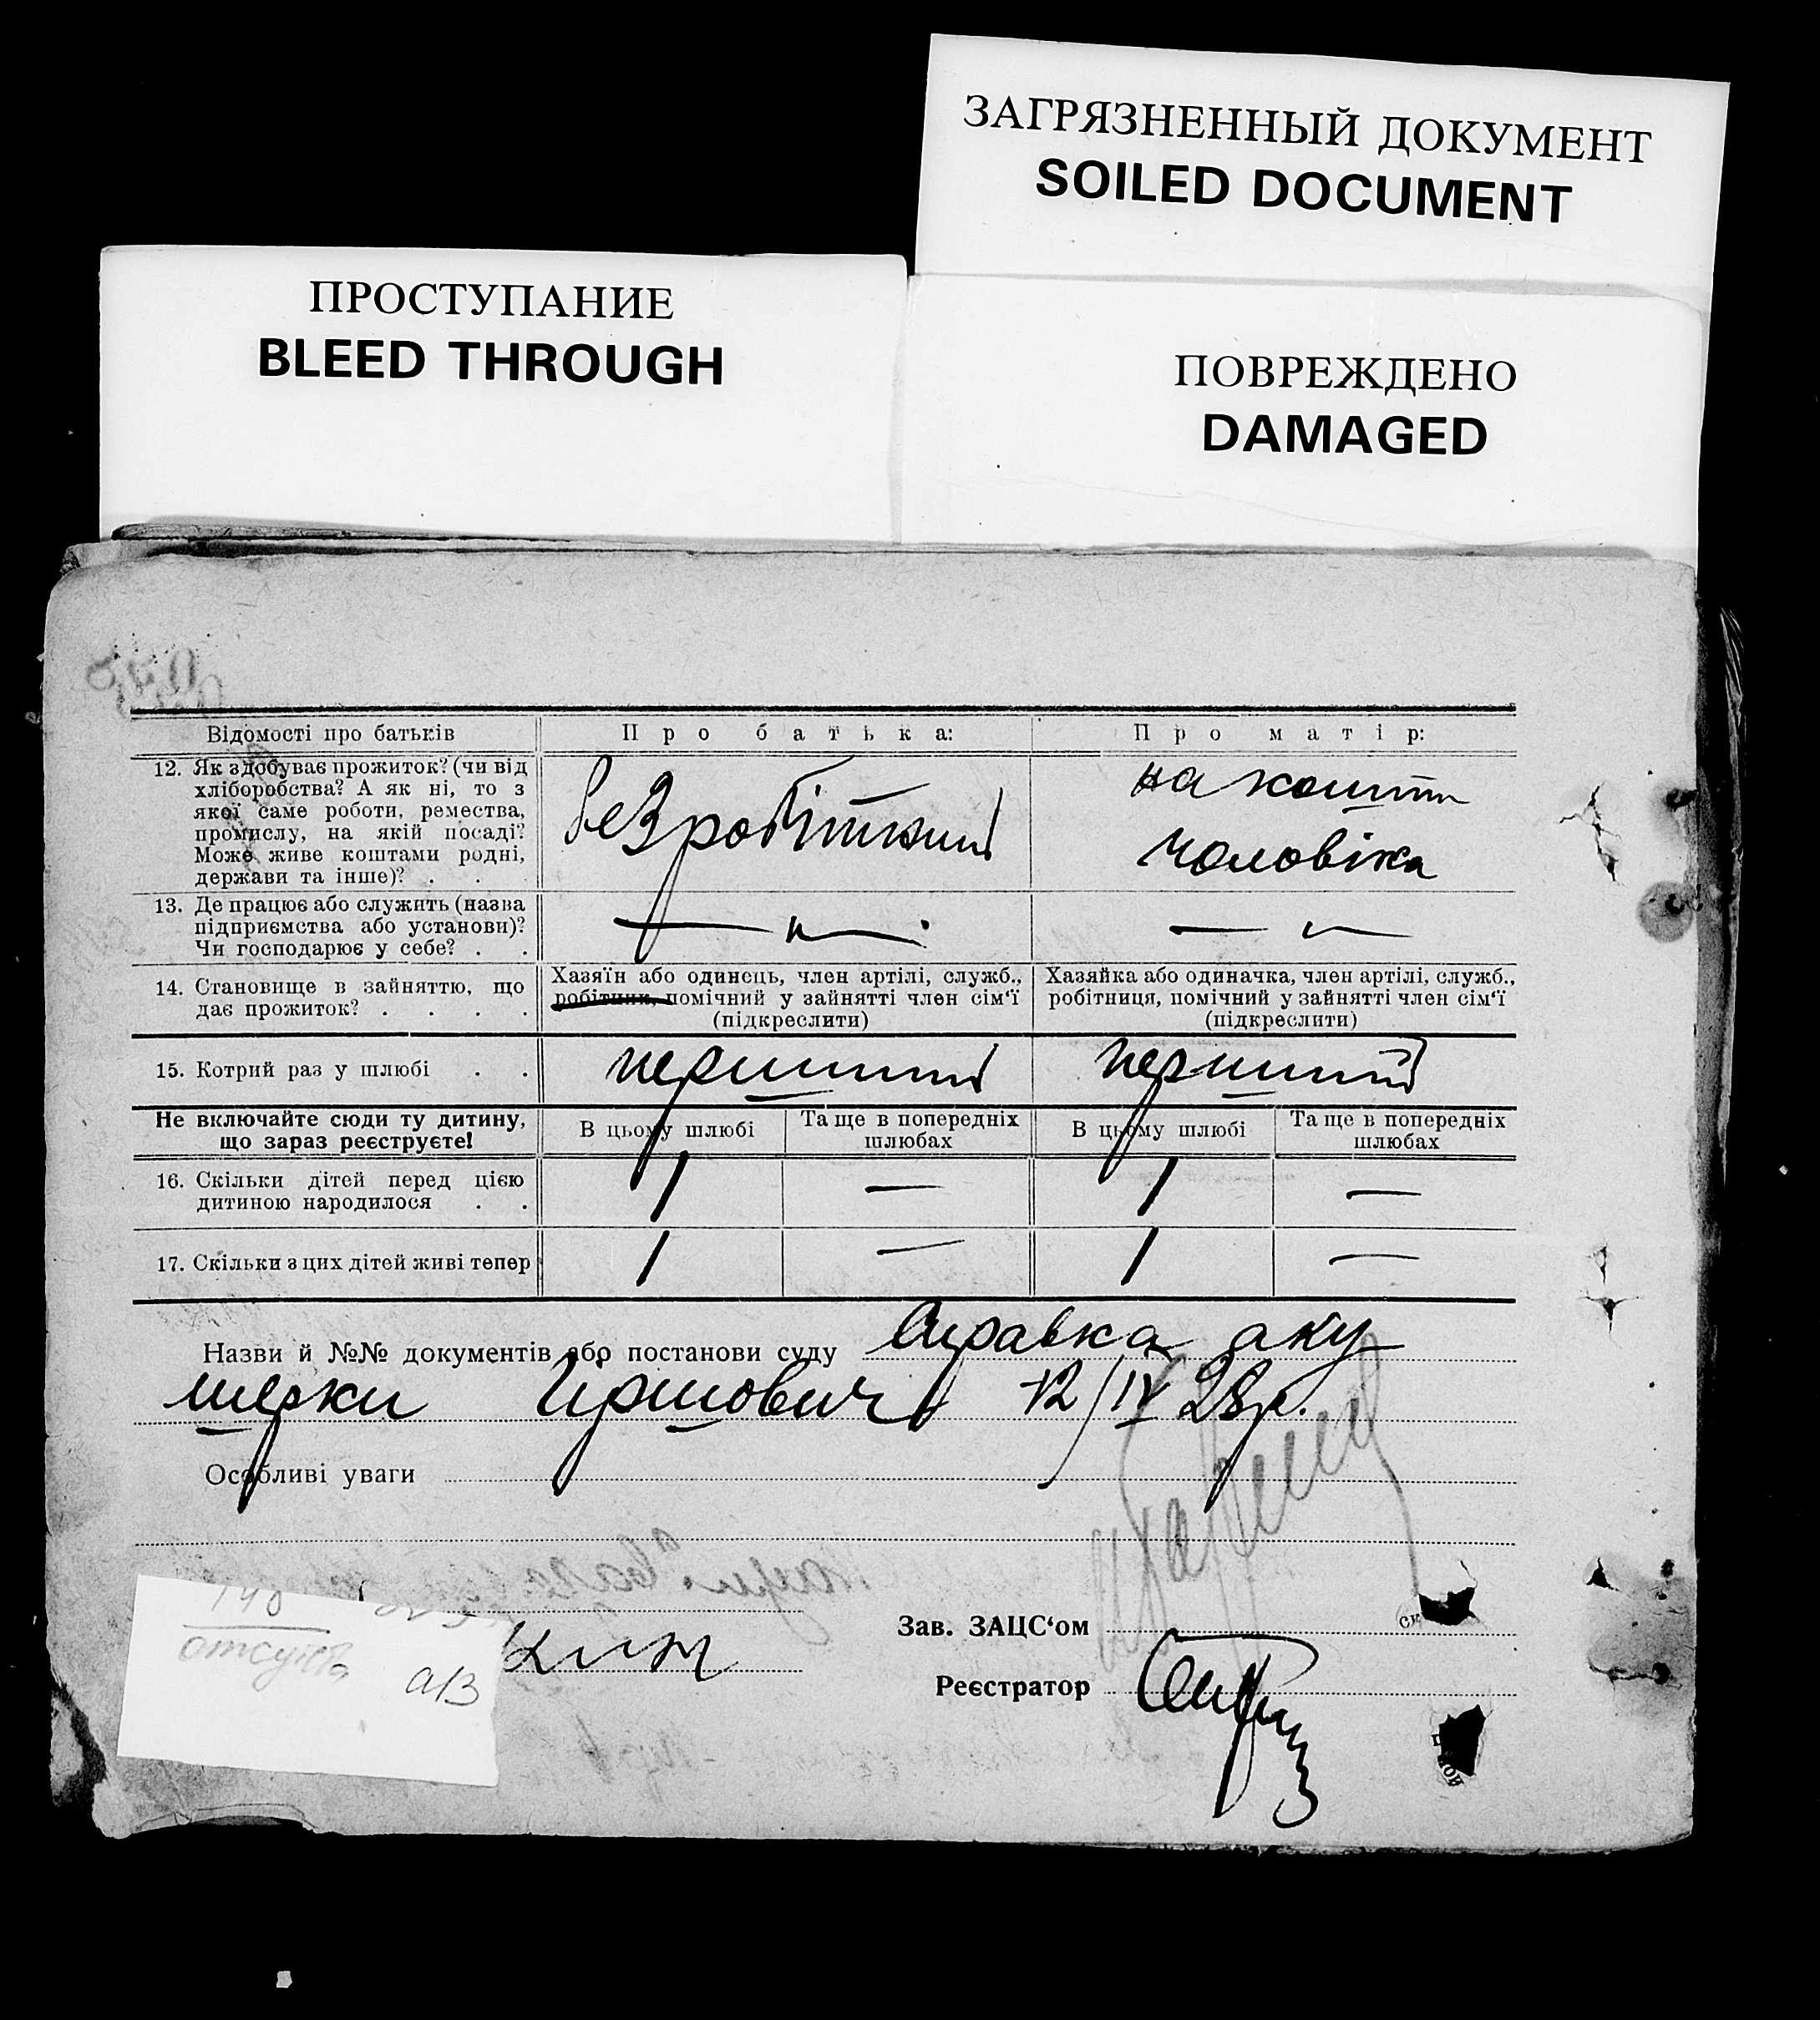 ЗАГРЯЗНЕННЫЙ ДОКУМЕНТ
SOILED DOCUMENT
ПРОСТУПАНИЕ
BLEED THROUGH
ПОВРЕЖДЕНО
DAMAGED
Відомості про батьків
Про батька:
Про матір:
12. Як здобуває прожиток? (чи від
хліборобства? А як ні, то з
якої саме роботи, ремества,
промислу, на якій посаді?
Може живе коштами родні,
держави та інше)? . .
безробітний
на кошти
чоловіка
13. Де працює або служить (назва
підприємства або установи)?
Чи господарює у себе? . .
— „ —
— „ —
14. Становище в зайняттю, що
дає прожиток? . . . .
Хазяїн або одинець, член артілі, служб.,
робітник, помічний у зайнятті член сім‘ї
(підкреслити)
Хазяйка або одиначка, член артілі, служб.,
робітниця, помічний у зайнятті член сім‘ї
(підкреслити)
15. Котрий раз у шлюбі . .
перший
перший
Не включайте сюди ту дитину,
що зараз реєструєте!
В цьому шлюбі
Та ще в попередніх
шлюбах
В цьому шлюбі
Та ще в попередніх
шлюбах
16. Скільки дітей перед цією
дитиною народилося . .
1 — 1 —
17. Скільки з цих дітей живі тепер
1 — 1 —
Назви й №№ документів або постанови суду Справка аку
шерки Гіршович 12/IV 28р.
Особливі уваги
Зав. ЗАЦС‘ом
Реєстратор